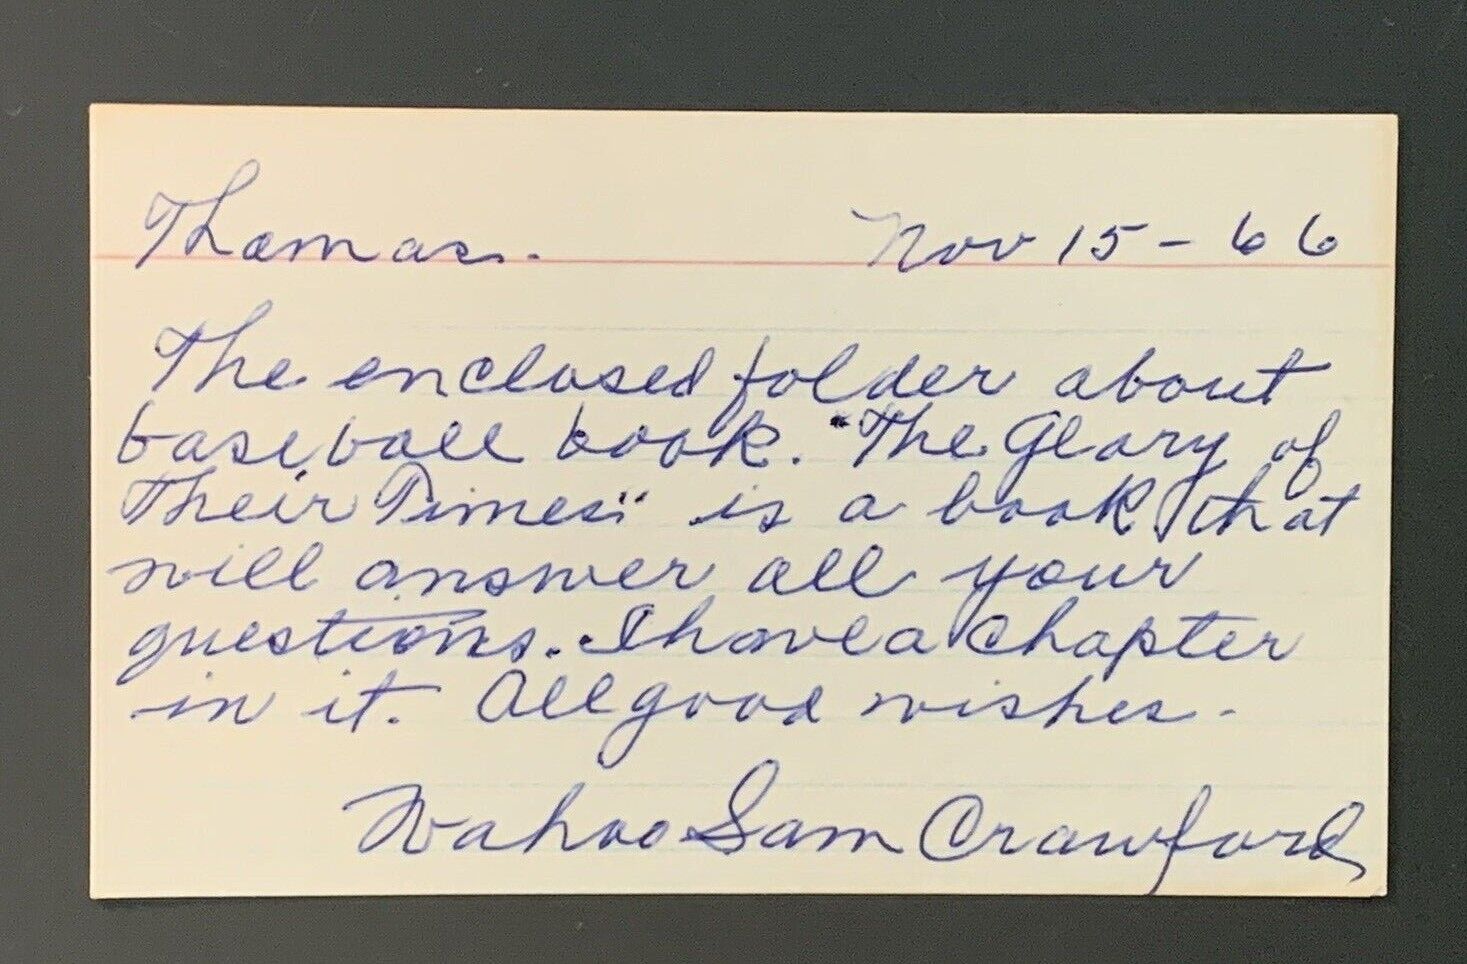 Thomas. Nov 15 - 66
The enclosed folder about
baseball book. "The Glory of
Their Times" is a book that
will answer all your
questions. I have a chapter
in it. All good wishes -
Wahoo Sam Crawford